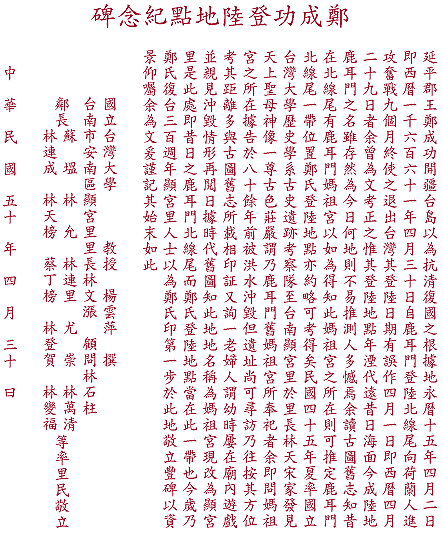 鄭成功登陸地點紀念碑
延平郡王鄭成功開疆台島以為抗清復國之根據地永曆十五年四月二日
即西曆一千六百六十一年四月三十日自鹿耳門登陸北線尾向荷蘭人進
攻奮戰九個月終使之退出台灣其登陸日期有誤作四月一日即西曆四月
二十九日者余曾為文考正之惟其登陸地點年湮代遠昔日海面今成陸地
鹿耳門之名雖存然為今日何地則不易推測人多憾焉余讀古圖舊志知昔
在北線尾有鹿耳門媽祖宮以為如得此媽祖宮之所在則可推定鹿耳門
北線尾一帶位置鄭氏登陸地點亦約略可考得矣民國四十五年夏率國立
台灣大學歷史學系古史遺跡考察隊至台南顯宮里於里長林天宋家發見
天上聖母神像一尊古色莊嚴謂乃鹿耳門舊媽祖宮所奉祀者余即問媽祖
宮之所在據告於八十餘年前被洪水沖毀但遺址尚可尋訪乃往按其方位
考其距離多與古圖舊志所載相印証又詢一老婦人謂幼時屢在廟內遊戲
並親見沖毀情形再閱日據時代舊圖知此地名稱為媽祖宮現改為顯宮
里是此處即昔日之鹿耳門北線尾而鄭氏登陸地點當在此一帶也今歲乃
鄭氏復台三百週年顯宮里人士以為鄭氏印第一步於此地敬立豐碑以資
景仰囑余為文爰謹記其始末如此
國立台灣大學 教授 楊雲萍 撰
台南市安南區顯宮里里長林文漲 顧問林石柱
鄰長 蘇塭 林允 林連里 尤崇 林萬清 等率里民敬立
林連成 林天榜 蔡丁榜 林登賀 林變福
中華民國五十年四月三十日